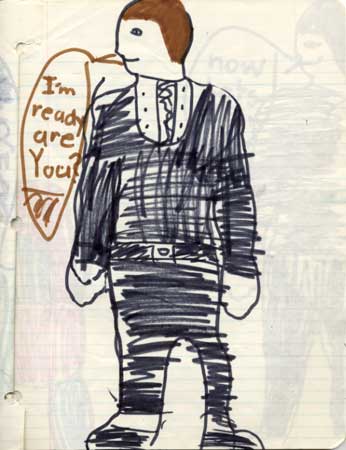 I'm
ready
are
You?
now